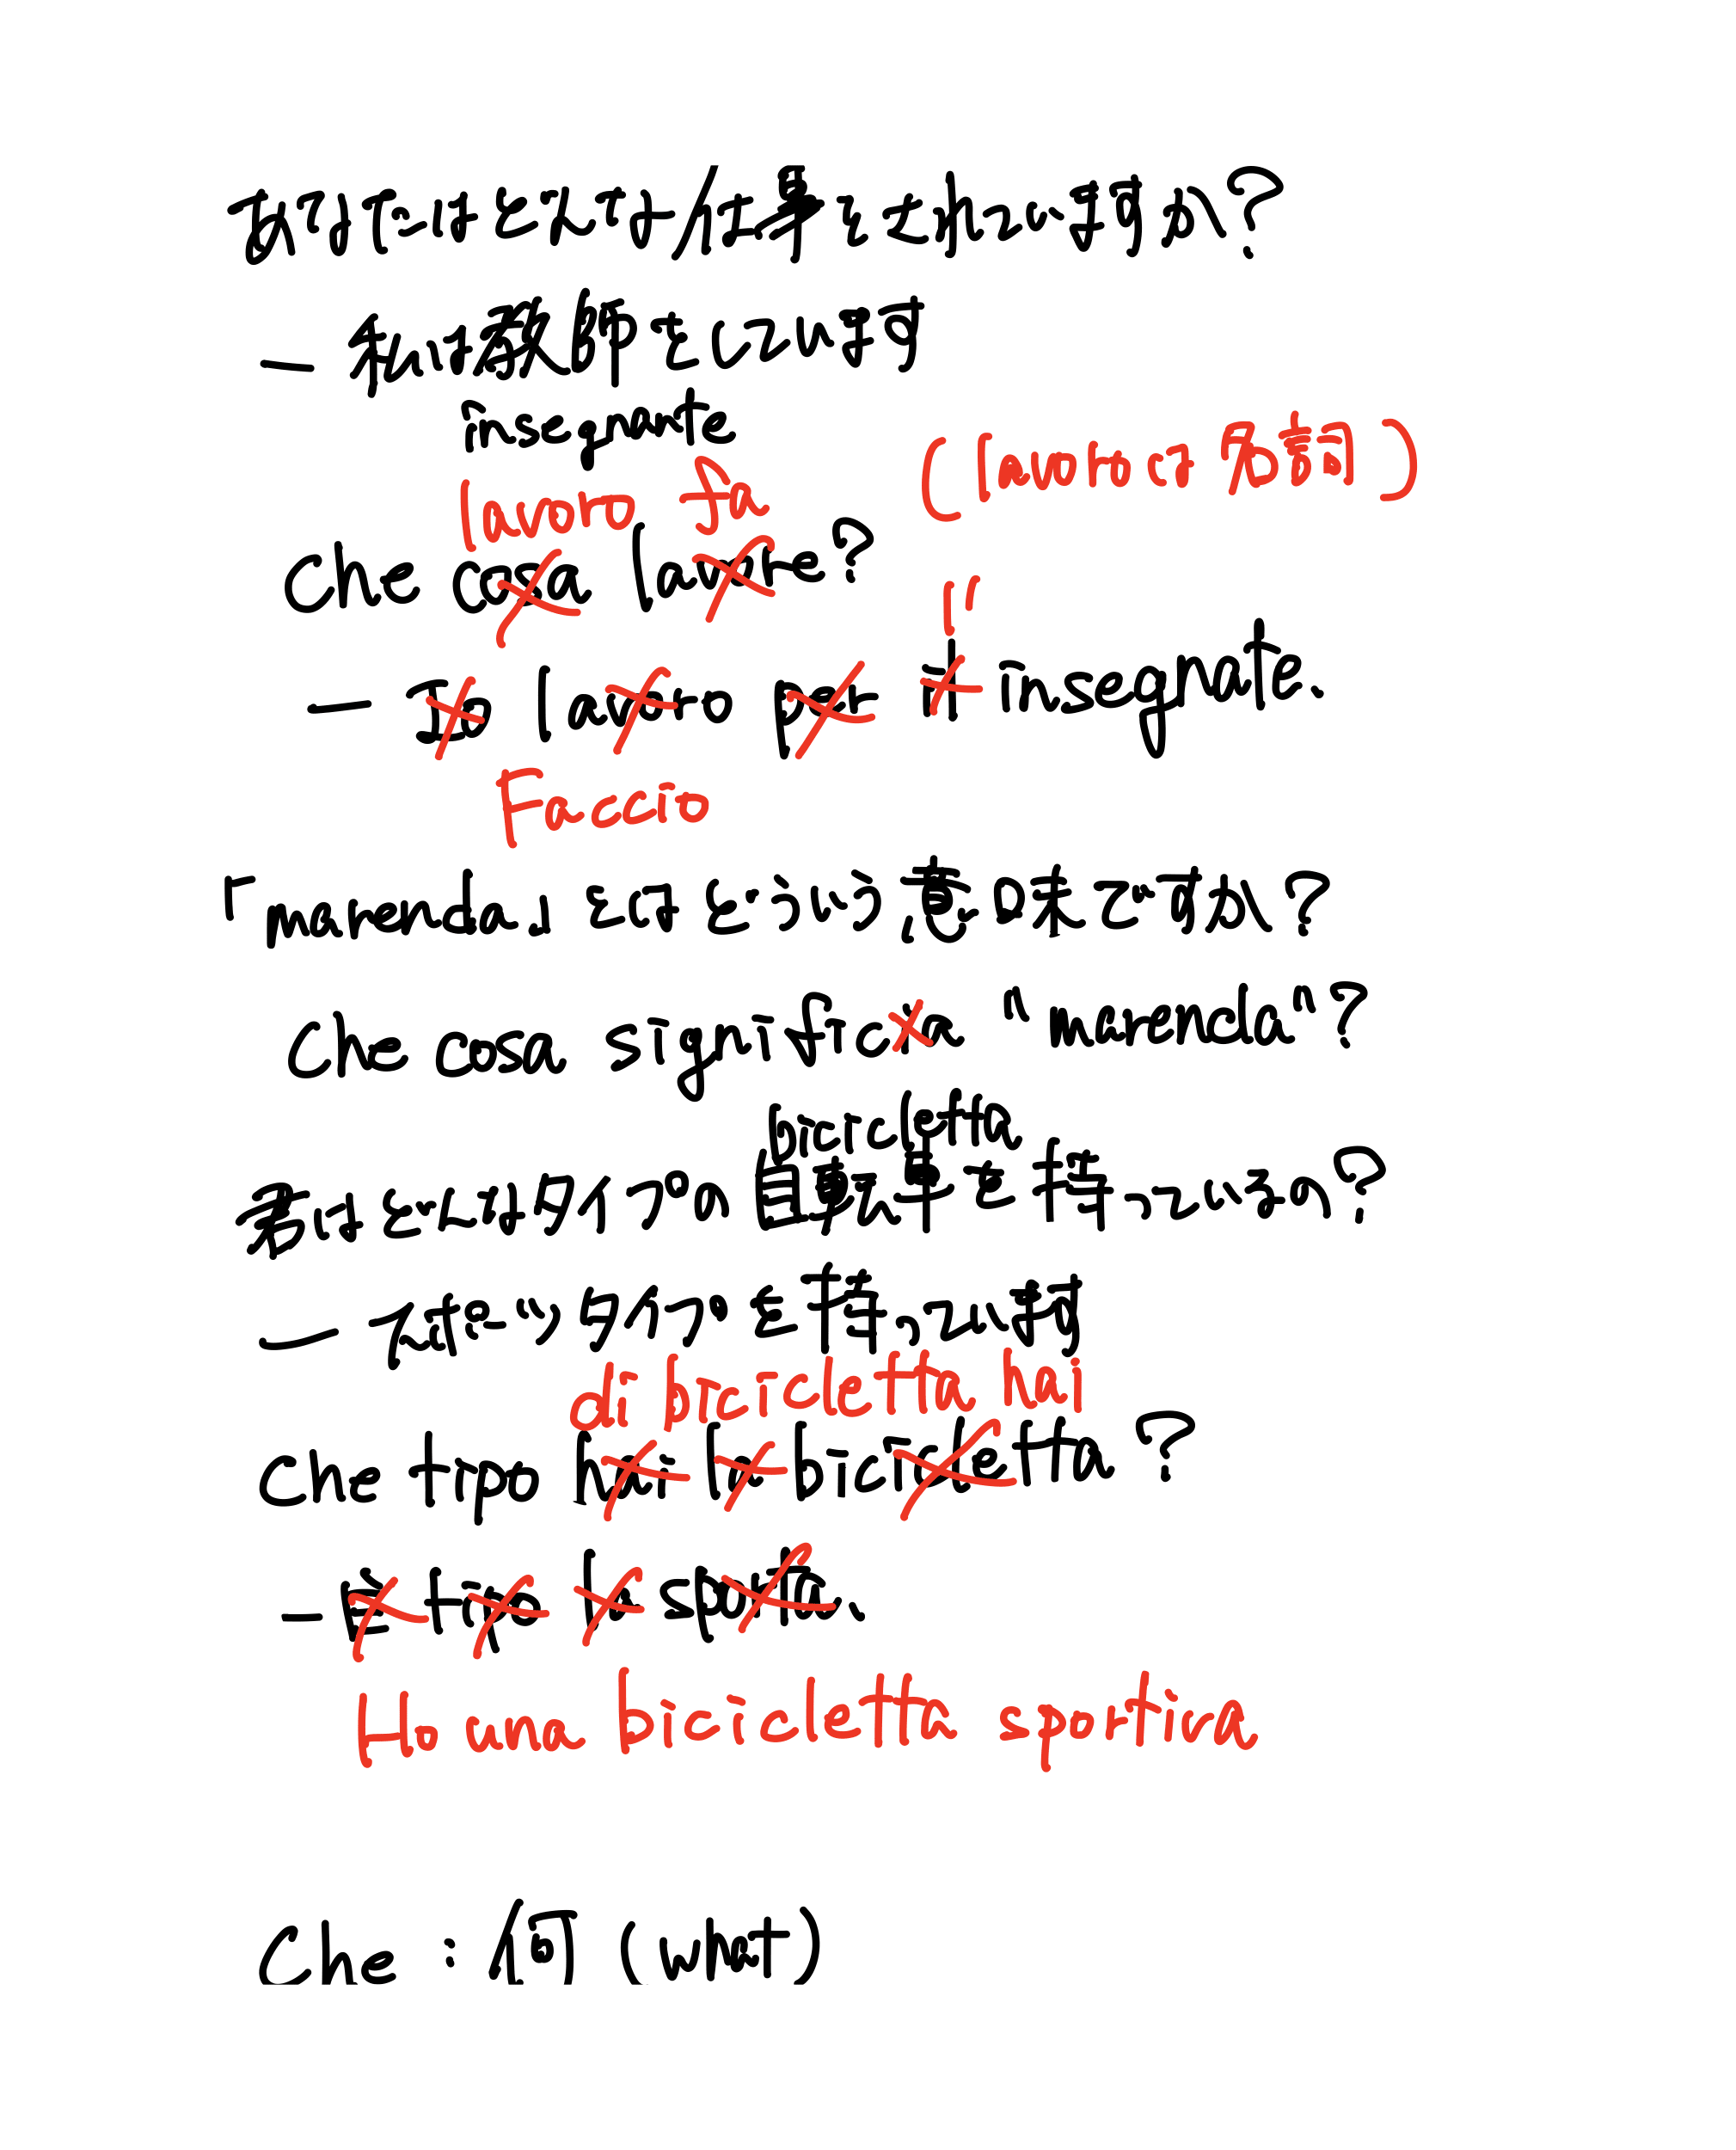 あなたはどんな仕事をされていますか?
— 私は教師をしています
insegnante
lavoro fa (lavoroは名詞)
Che cosa lavore?
l'
— Io lavoro per il insegnate.
Faccio
「marenda」とはどういう意味ですか?
Che cosa significia "marenda"?
bicicletta
君はどんなタイプの自転車を持っているの?
— スポーツタイプを持っています
di bicicletta hai
Che tipo hai la bicicletta?
— È tipo la sporta.
Ho una bicicletta sportiva
Che : 何 (what)